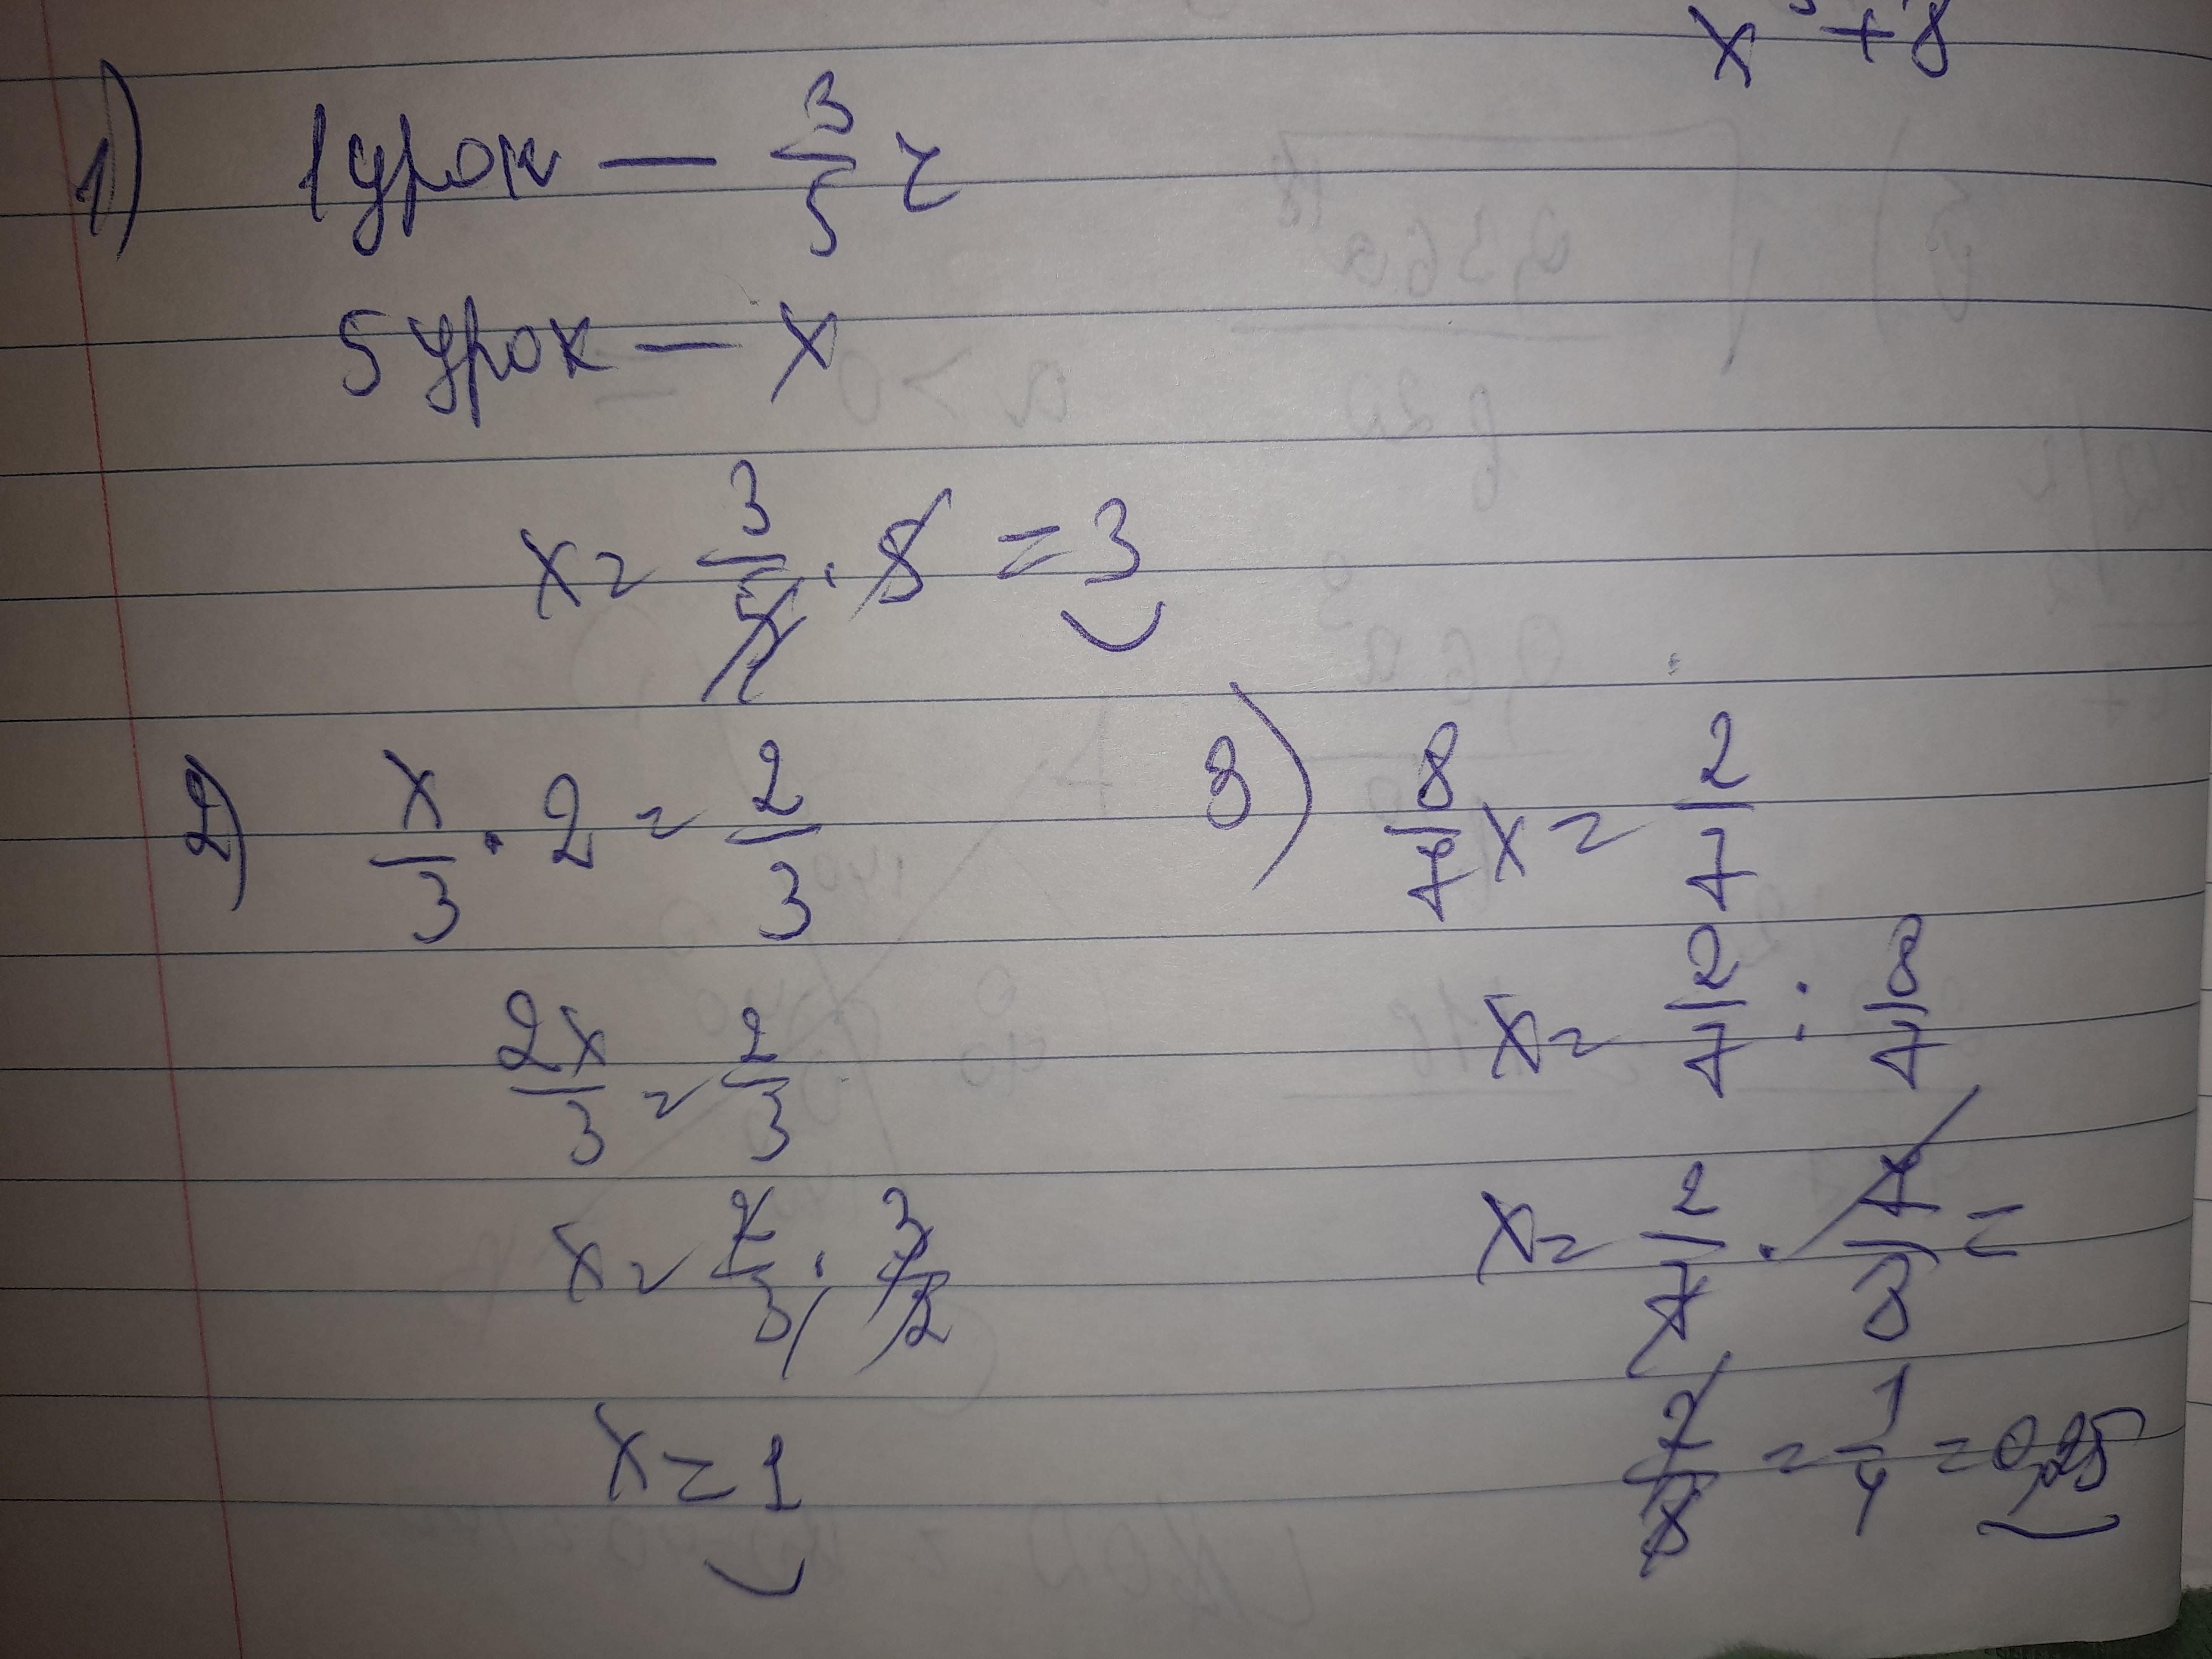 x³ + 8
1) 1 урок — 3/5 ч
5 урок — x
x = 3/5 · 5 = 3
2) x/3 · 2 = 2/3
2x/3 = 2/3
x = 2/3 · 3/2
x = 1
3) 8/7 x = 2/7
x = 2/7 : 8/7
x = 2/7 · 7/8 =
2/8 = 1/4 = 0,25